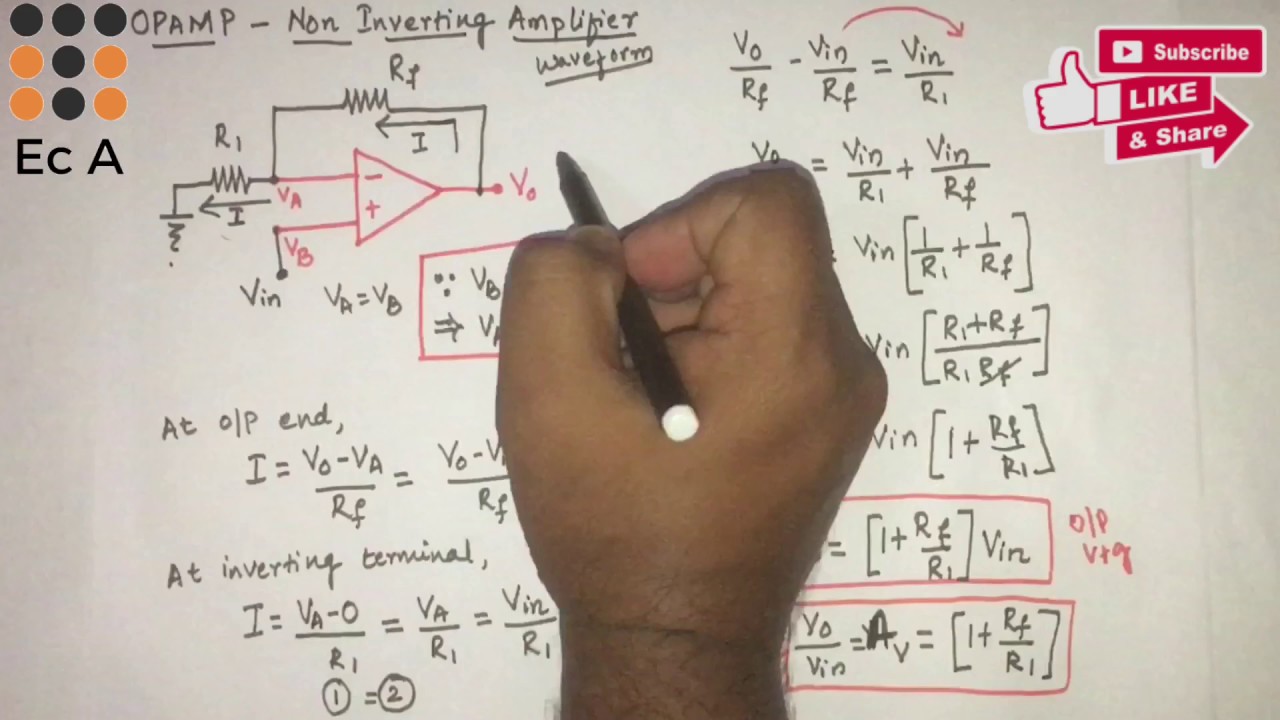 OPAMP - Non Inverting Amplifier
waveform
Ec A
Rf
I
R1
VA
I
VB
Vin
Vo
VA = VB
∵ VB
⇒ VA
At o/p end,
I = Vo-VA/Rf = Vo-V/Rf
At inverting terminal,
I = VA-0/R1 = VA/R1 = Vin/R1
① = ②
Vo/Rf - Vin/Rf = Vin/R1
Vo = Vin/R1 + Vin/Rf
Vin [1/R1 + 1/Rf]
Vin [R1+Rf/R1 Rf]
Vin [1 + Rf/R1]
= [1+Rf/R1] Vin
O/P
Vtg
Vo/Vin = Av = [1+Rf/R1]
Subscribe
LIKE
& Share